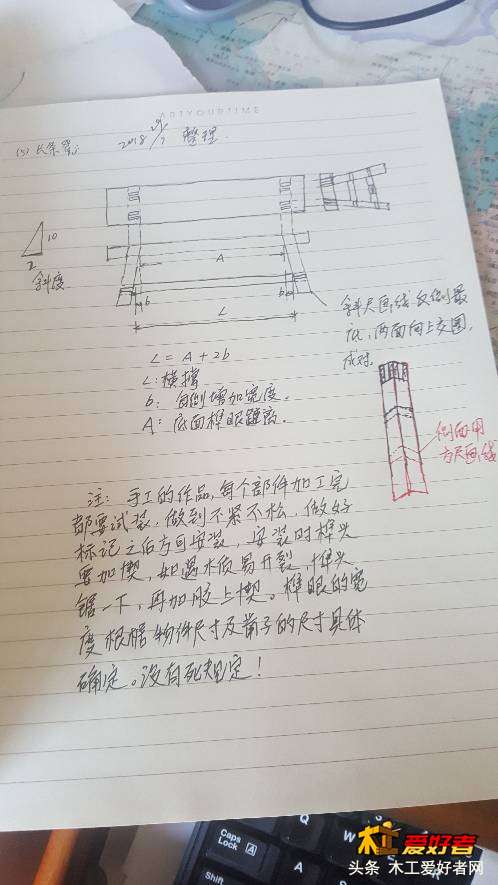 ARTYOURTIME
(5) 长条凳:
2018 整理.
10
2
斜度
A
b
b
L
斜尺画线交侧最
底,两面向上交圈,
成对.
L = A + 2b
L: 横撑
b: 每侧增加宽度.
A: 底面榫眼距离.
侧面用
方尺画线
注: 手工的作品,每个部件加工完
都要试装,做到不紧不松,做好
标记之后方可安装,安装时榫头
要加楔,如遇木质易开裂,榫头
锯一下,再加胶上楔。榫眼的宽
度根据物件尺寸及凿子的尺寸具体
确定。没有死规定!
Caps
Lock
A
Q
A
Shift
木工爱好者
头条 木工爱好者网